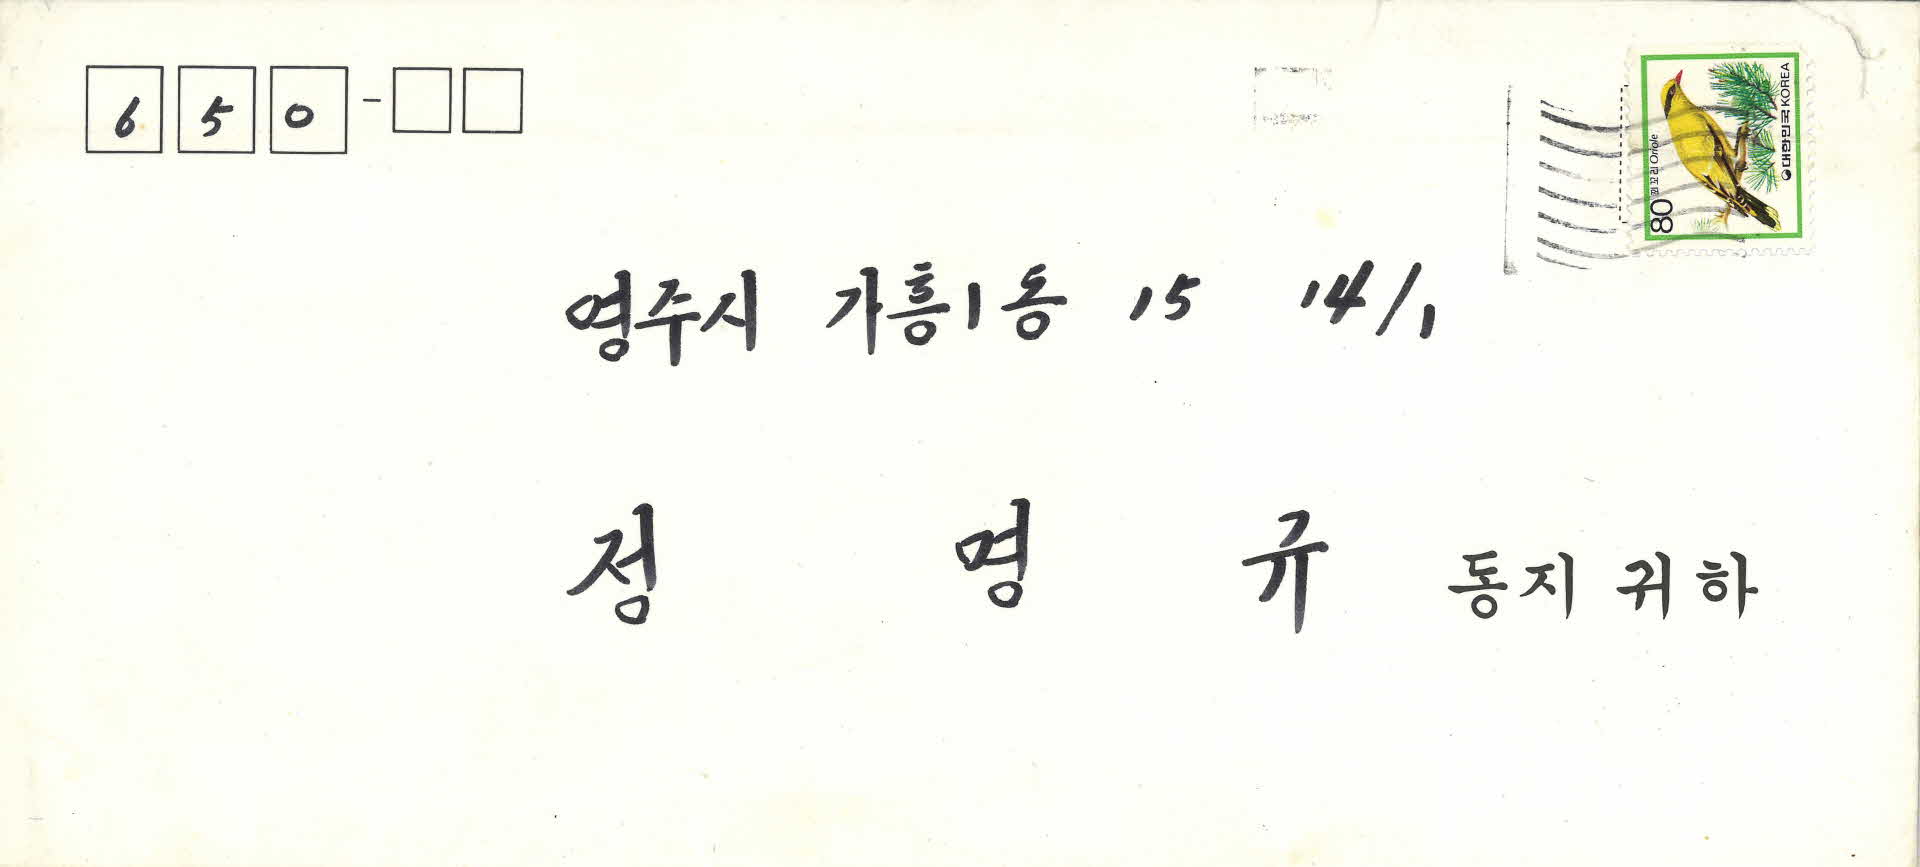 650-
대한민국 KOREA
꾀꼬리 Oriole
80
영주시 가흥1동 15 14/1
정 명 규 동지 귀하